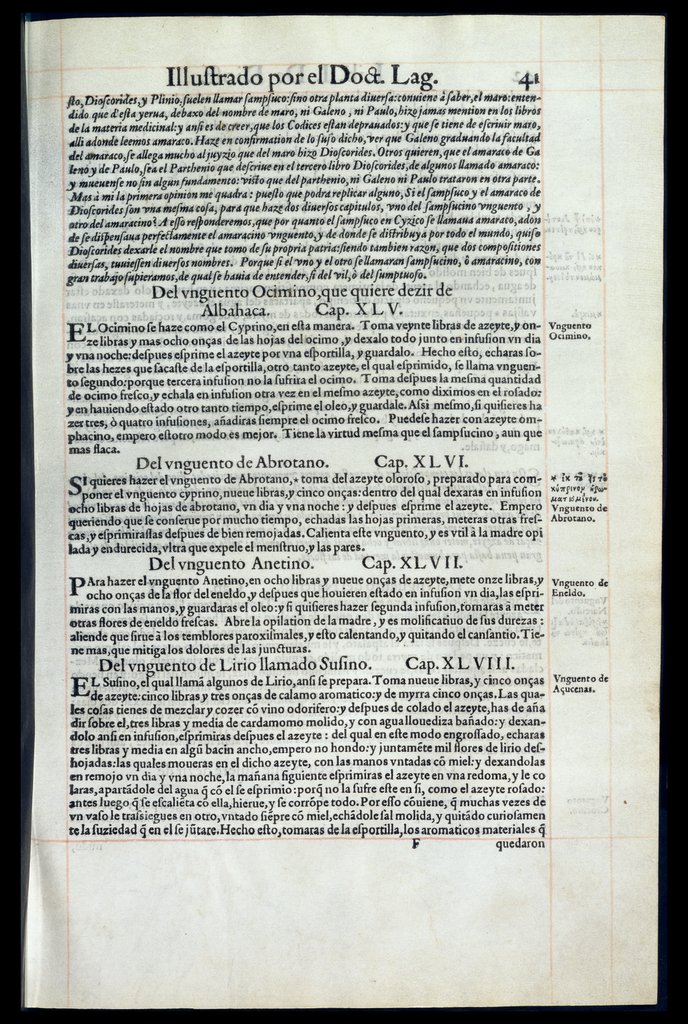 Illuſtrado por el Doct. Lag. 41
ſto, Dioſcorides, y Plinio. ſuelen llamar ſampſuco: ſino otra planta diuerſa: conuiene à ſaber, el maro: enten-
dido que d'eſta yerua, debaxo del nombre de maro, ni Galeno, ni Paulo, hizo jamas mention en los libros
de la materia medicinal: y anſi es de creer, que los Codices eſtan deprauados: y que ſe tiene de eſcriuir maro,
alli adonde leemos amaraco. Haze en confirmation de lo ſuſo dicho, ver que Galeno graduando la facultad
del amaraco, ſe allega mucho al juyzio que del maro hizo Dioſcorides. Otros quieren, que el amaraco de Ga
leno y de Paulo, ſea el Parthenio que deſcriue en el tercero libro Dioſcorides, de algunos llamado amaraco:
y mueuenſe no ſin algun fundamento: viſto que del parthenio, ni Galeno ni Paulo trataron en otra parte.
Mas à mi la primera opinion me quadra: pueſto que podra replicar alguno, Si el ſampſuco y el amaraco de
Dioſcorides ſon vna meſma coſa, para que haze dos diuerſos capitulos, vno del ſampſucino vnguento, y
otro del amaracino? A eſſo reſponderemos, que por quanto el ſampſuco en Cyzico ſe llamaua amaraco, adon
de ſe diſpenſaua perfectamente el amaracino vnguento, y de donde ſe diſtribuya por todo el mundo, quiſo
Dioſcorides dexarle el nombre que tomo de ſu propria patria: ſiendo tambien razon, que dos compoſitiones
diuerſas, tuuieſſen diuerſos nombres. Porque ſi el vno y el otro ſe llamaran ſampſucino, ò amaracino, con
gran trabajo ſupieramos, de qual ſe hauia de entender, ſi del vil, ò del ſumptuoſo.
Del vnguento Ocimino, que quiere dezir de
Albahaca. Cap. XLV.
EL Ocimino ſe haze como el Cyprino, en eſta manera. Toma veynte libras de azeyte, y on-
ze libras y mas ocho onças de las hojas del ocimo, y dexalo todo junto en infuſion vn dia
y vna noche: deſpues eſprime el azeyte por vna eſportilla, y guardalo. Hecho eſto, echaras ſo-
bre las hezes que ſacaſte de la eſportilla, otro tanto azeyte, el qual eſprimido, ſe llama vnguen-
to ſegundo: porque tercera infuſion no la ſufrira el ocimo. Toma deſpues la meſma quantidad
de ocimo freſco, y echala en infuſion otra vez en el meſmo azeyte, como diximos en el roſado:
y en hauiendo eſtado otro tanto tiempo, eſprime el oleo, y guardale. Aſsi meſmo, ſi quiſieres ha
zer tres, ò quatro infuſiones, añadiras ſiempre el ocimo freſco. Puedeſe hazer con azeyte om-
phacino, empero eſtotro modo es mejor. Tiene la virtud meſma que el ſampſucino, aun que
mas flaca.
Vnguento
Ocimino.
Del vnguento de Abrotano. Cap. XLVI.
SI quieres hazer el vnguento de Abrotano, * toma del azeyte oloroſo, preparado para com-
poner el vnguento cyprino, nueue libras, y cinco onças: dentro del qual dexaras en infuſion
ocho libras de hojas de abrotano, vn dia y vna noche: y deſpues eſprime el azeyte. Empero
queriendo que ſe conſerue por mucho tiempo, echadas las hojas primeras, meteras otras freſ-
cas, y eſprimiraslas deſpues de bien remojadas. Calienta eſte vnguento, y es vtil à la madre opi
lada y endurecida, vltra que expele el menſtruo, y las pares.
Vnguento de
Abrotano.
Del vnguento Anetino. Cap. XLVII.
PAra hazer el vnguento Anetino, en ocho libras y nueue onças de azeyte, mete onze libras, y
ocho onças de la flor del eneldo, y deſpues que houieren eſtado en infuſion vn dia, las eſpri-
miras con las manos, y guardaras el oleo: y ſi quiſieres hazer ſegunda infuſion, tomaras à meter
otras flores de eneldo freſcas. Abre la opilation de la madre, y es molificatiuo de ſus durezas:
aliende que ſirue à los temblores paroxiſmales, y eſto calentando, y quitando el canſantio. Tie-
ne mas, que mitiga los dolores de las juncturas.
Vnguento de
Eneldo.
Del vnguento de Lirio llamado Suſino. Cap. XLVIII.
EL Suſino, el qual llamã algunos de Lirio, anſi ſe prepara. Toma nueue libras, y cinco onças
de azeyte: cinco libras y tres onças de calamo aromatico: y de myrra cinco onças. Las qua-
les coſas tienes de mezclar y cozer cõ vino odorifero: y deſpues de colado el azeyte, has de aña
dir ſobre el, tres libras y media de cardamomo molido, y con agua llouediza bañado: y dexan-
dolo anſi en infuſion, eſprimiras deſpues el azeyte: del qual en eſte modo engroſſado, echaras
tres libras y media en algũ bacin ancho, empero no hondo: y juntamẽte mil flores de lirio deſ-
hojadas: las quales moueras en el dicho azeyte, con las manos vntadas cõ miel: y dexandolas
en remojo vn dia y vna noche, la mañana ſiguiente eſprimiras el azeyte en vna redoma, y le co
laras, apartãdole del agua q̃ cõ el ſe eſprimio: porq̃ no la ſufre eſte en ſi, como el azeyte roſado:
antes luego q̃ ſe eſcalieta cõ ella, hierue, y ſe corrõpe todo. Por eſſo cõuiene, q̃ muchas vezes de
vn vaſo le traſsiegues en otro, vntado ſiẽpre cõ miel, echãdole ſal molida, y quitãdo curioſamen
te la ſuziedad q̃ en el ſe jũtare. Hecho eſto, tomaras de la eſportilla, los aromaticos materiales q̃
Vnguento de
Açucenas.
F quedaron